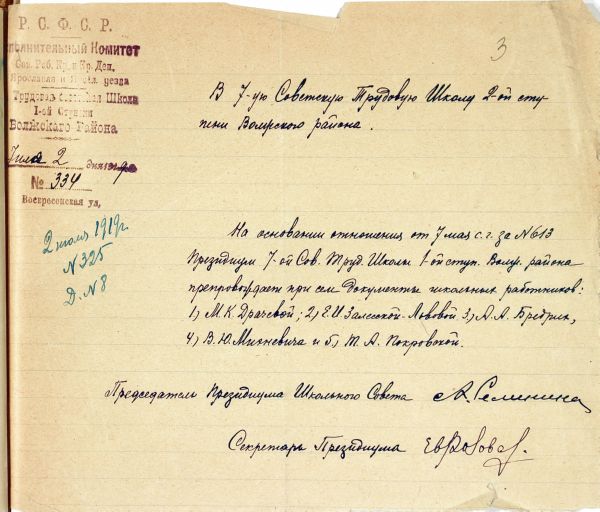 Р. С. Ф. С. Р.
3
сполнительный Комитет
Сов. Раб. Кр. и Кр. Деп.
Ярославля и Яросл. уезда
Трудовая Советская Школа
1-ой Ступени
Волжского Района
Июля 2 дня 1919
№ 334
Воскресенская ул,
В 7-ую Советскую Трудовую Школу 2-ой сту
пени Волжского района.
2 июля 1919 г.
N 325
Д. N 8
На основании отношения от 7 мая с. г. за N 613
Президиум 7-ой Сов. Труд. Школы 1-ой ступ. Волж. района
препровождает при сем документы школьных работников:
1) М. К. Драчевой; 2) Е. И Залесской-Лововой 3) А. А. Бредрих,
4) В. Ю. Мицкевича и 5) Т. А. Покровской.
Председатель Президиума Школьного Совета А. Семинина
Секретарь Президиума